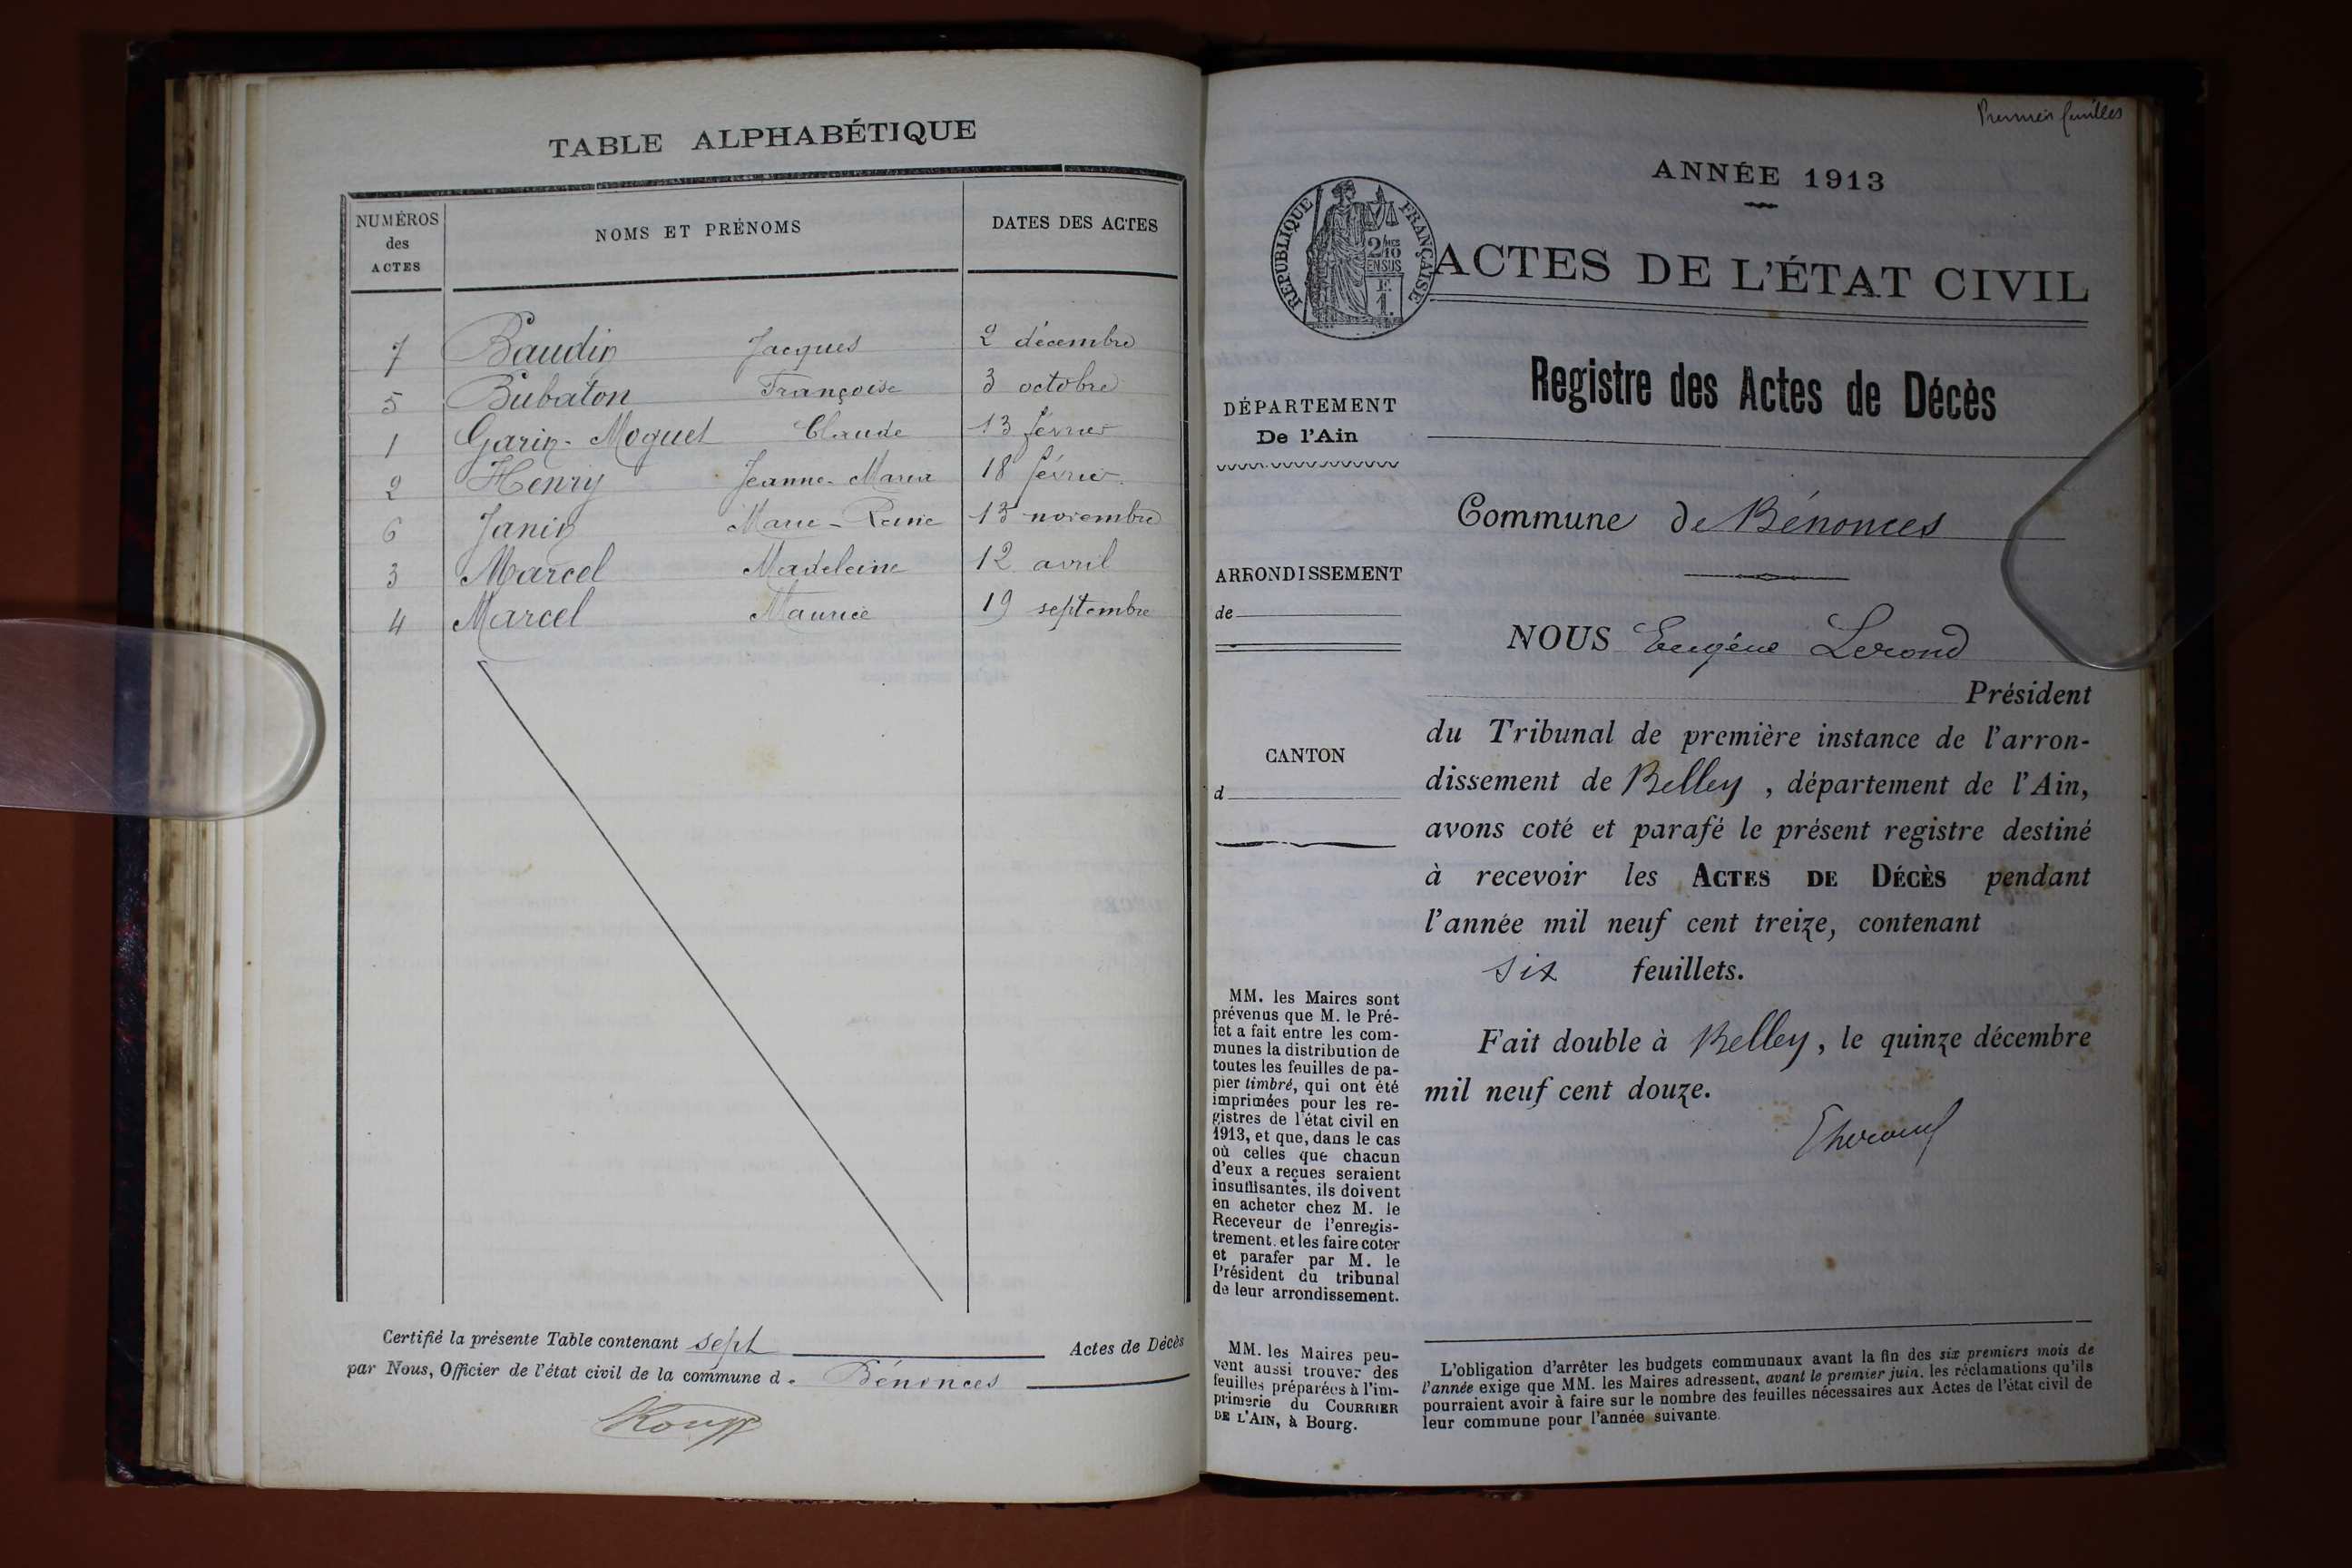 TABLE ALPHABÉTIQUE
NUMÉROS des ACTES NOMS ET PRÉNOMS DATES DES ACTES
7 Baudin Jacques 2 décembre
5 Bubaton Françoise 3 octobre
1 Garin-Moguet Claude 13 février
2 Henry Jeanne-Maria 18 février
6 Janin Marie-Reine 13 novembre
3 Marcel Madeleine 12 avril
4 Marcel Maurice 19 septembre
Certifié la présente Table contenant sept Actes de Décès
par Nous, Officier de l'état civil de la commune d. Bénonces
Premier feuillet
ANNÉE 1913
RÉPUBLIQUE FRANÇAISE
2/10
EN SUS
F.
1.
ACTES DE L'ÉTAT CIVIL
Registre des Actes de Décès
DÉPARTEMENT
De l'Ain
Commune de Bénonces
ARRONDISSEMENT
de
NOUS Eugéne Lerond
Président
du Tribunal de première instance de l'arron-
dissement de Belley, département de l'Ain,
avons coté et parafé le présent registre destiné
à recevoir les ACTES DE DÉCÈS pendant
l'année mil neuf cent treize, contenant
six feuillets.
Fait double à Belley, le quinze décembre
mil neuf cent douze.
CANTON
d
MM. les Maires sont
prévenus que M. le Pré-
fet a fait entre les com-
munes la distribution de
toutes les feuilles de pa-
pier timbré, qui ont été
imprimées pour les re-
gistres de l'état civil en
1913, et que, dans le cas
où celles que chacun
d'eux a reçues seraient
insuffisantes, ils doivent
en acheter chez M. le
Receveur de l'enregis-
trement. et les faire coter
et parafer par M. le
Président du tribunal
de leur arrondissement.
MM. les Maires peu-
vent aussi trouver des
feuilles préparées à l'im-
primerie du COURRIER
DE L'AIN, à Bourg.
L'obligation d'arrêter les budgets communaux avant la fin des six premiers mois de
l'année exige que MM. les Maires adressent, avant le premier juin. les réclamations qu'ils
pourraient avoir à faire sur le nombre des feuilles nécessaires aux Actes de l'état civil de
leur commune pour l'année suivante.